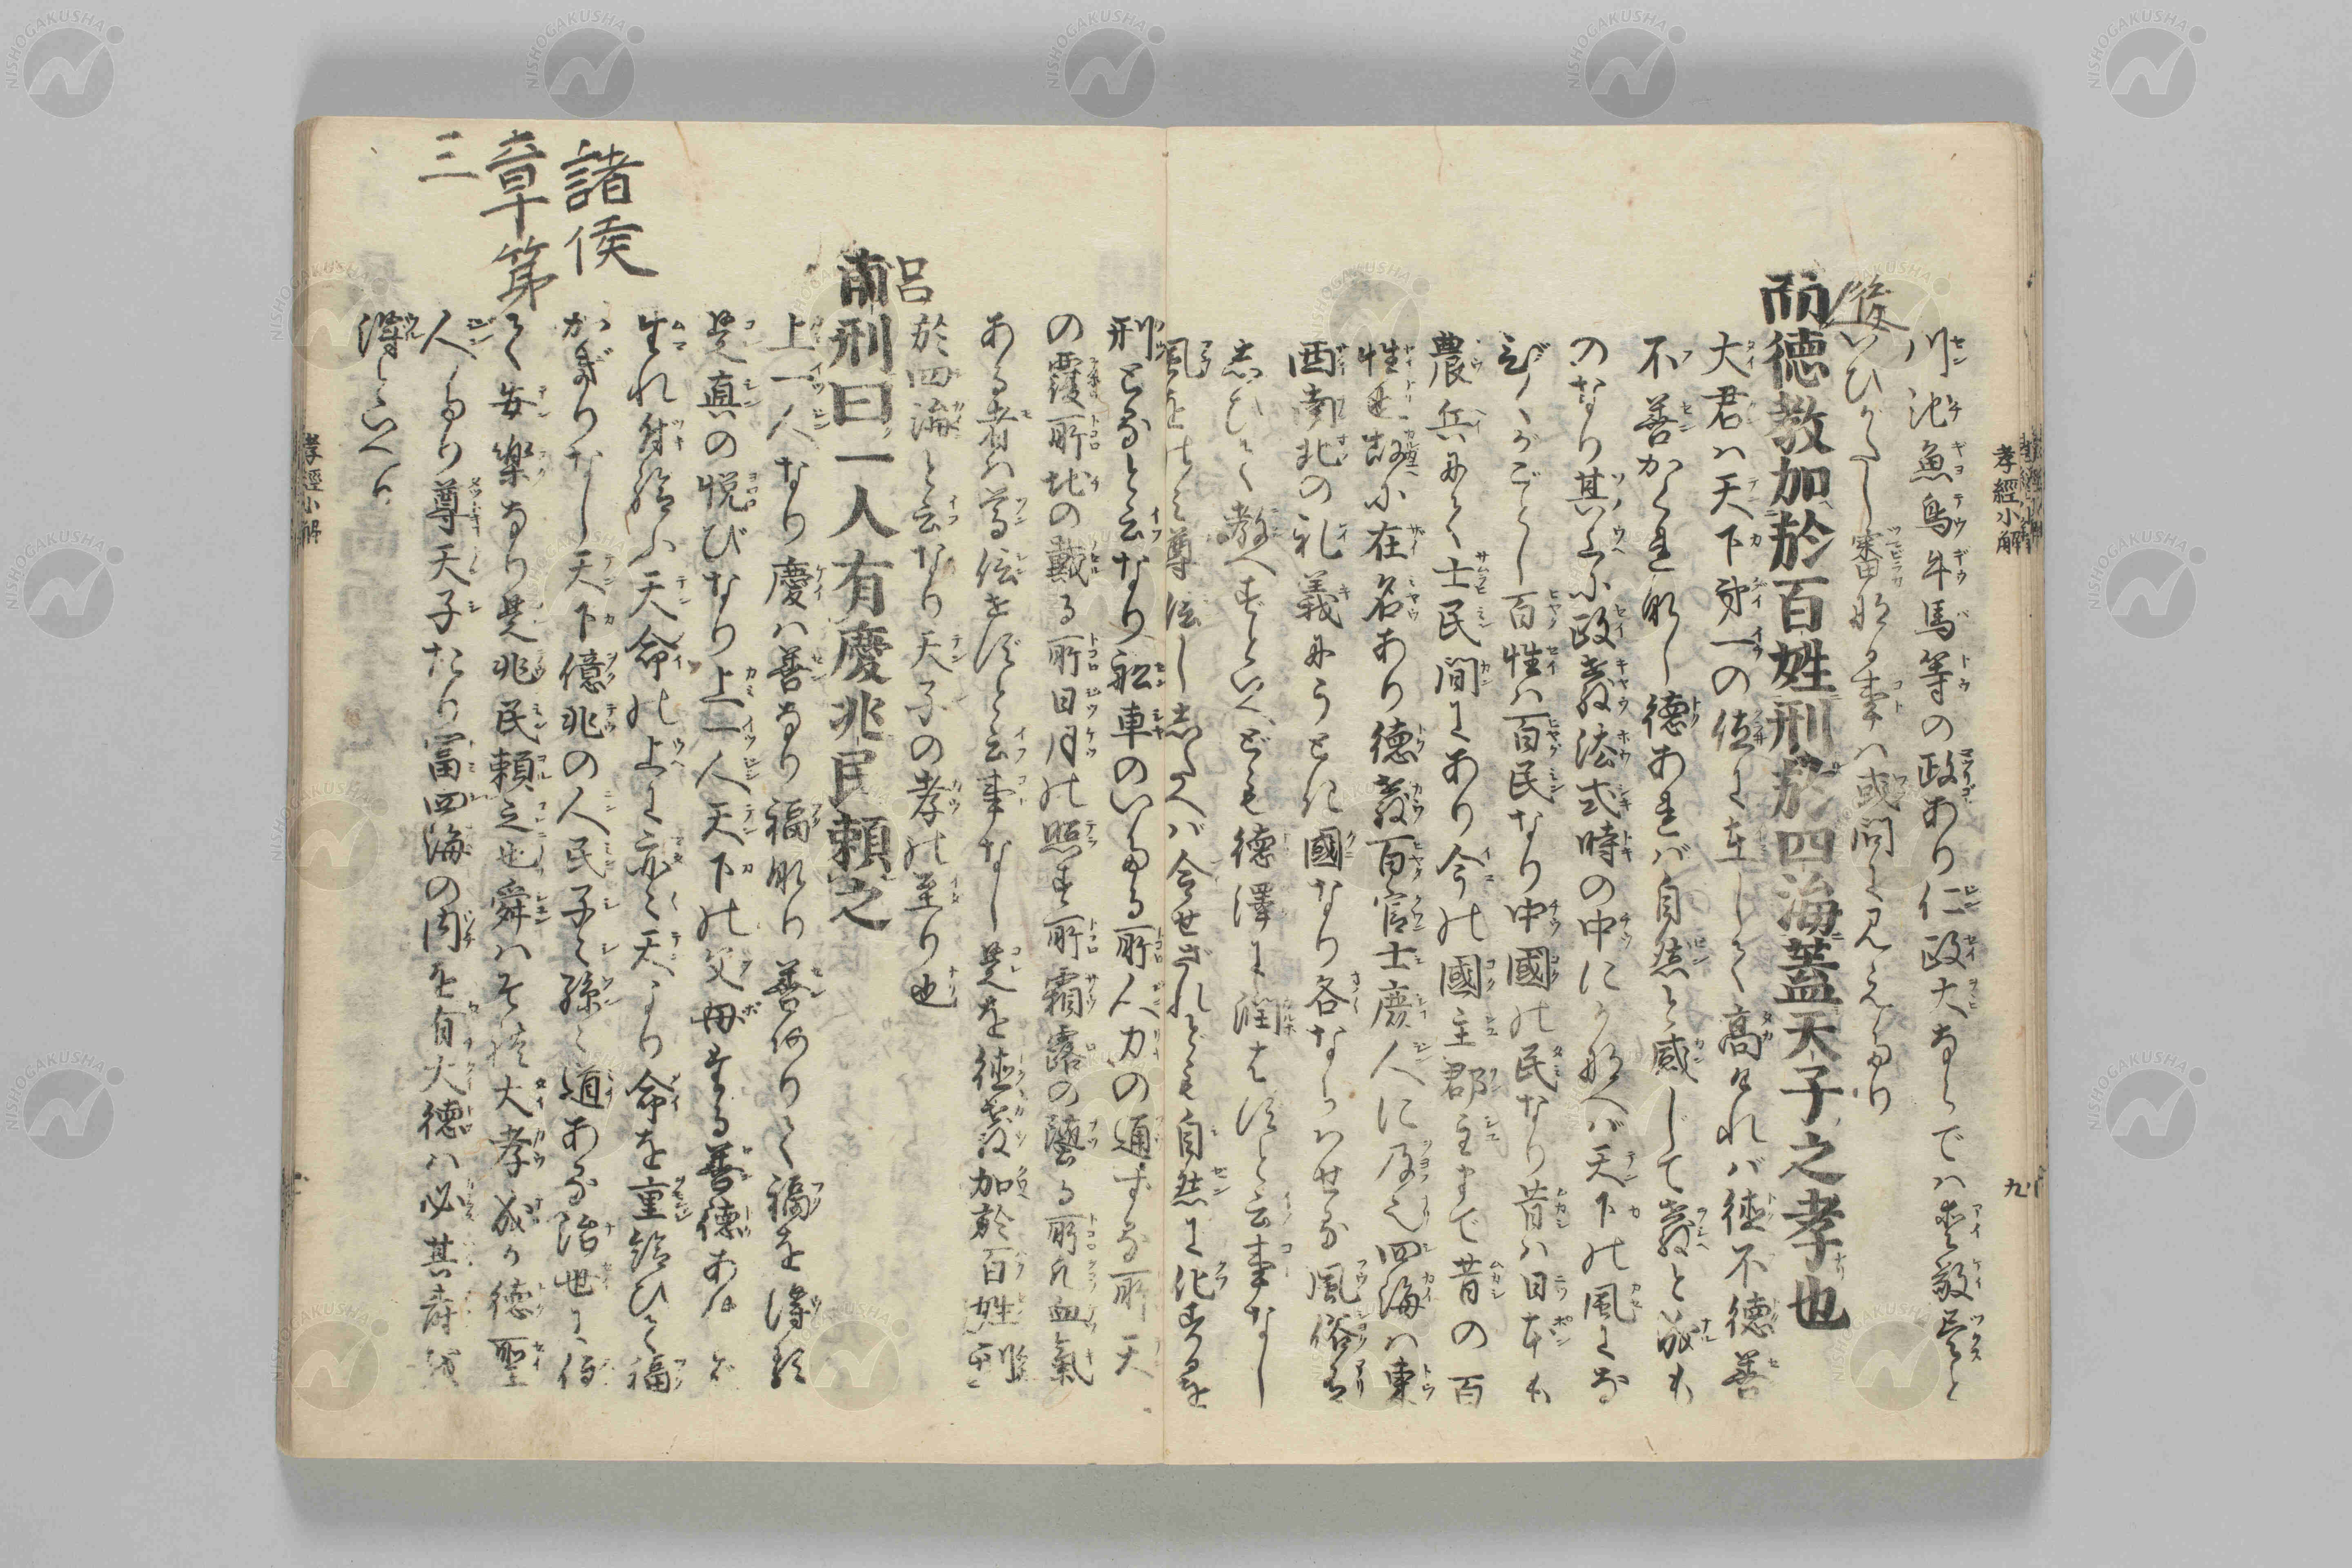 孝經小解
九
川池魚鳥牛馬等の政あり仁政大ならでハ愛敬尽と
後
いひがたし審なる事ハ或問に見えたり
而徳教加於百姓刑於四海蓋天子之孝也
大君ハ天下第一の位に在して高ければ徳不徳善
不善かくれなし徳あれバ自然と感じて教と成も
のなり其上に政教法式時の中にかなへバ天下の風になび
くがごとし百姓ハ百民なり中國の民なり昔ハ日本も
農兵にて士民間にあり今の國主郡主まで昔の百
姓在名あり徳教百官士庶人に及之四海ハ東
西南北の礼義にうとき國なり各ならハせる風俗有
教へずといへども徳澤に潤はずと云事なし
風をはこび尊信したへバ令せざれども自然に化するを
刑となると云なり船車のいたる所人力の通ずる所天
の覆所地の載る所日月の照す所霜露の隊る所凡血氣
ある者ハ尊信せずと云事なし是を徳教加於百姓刑
於四海と云なり天子の孝の至り也
呂
甫刑曰一人有慶兆民頼之
上一人なり慶ハ善なり福なり善ありて福を得る
是真の悦びなり上一人天下の父母たる善徳あれバ
生れ付給ふ天命の上に亦々天より命を重給ひて福
かぎりなし天下億兆の人民子々孫々道ある治世に
て安樂なり是兆民頼之也舜ハそれ大孝成か徳聖
人たり尊天子たり富四海の内を有大徳ハ必其寿を
得といへり
諸侯
章第
三
孝經小解